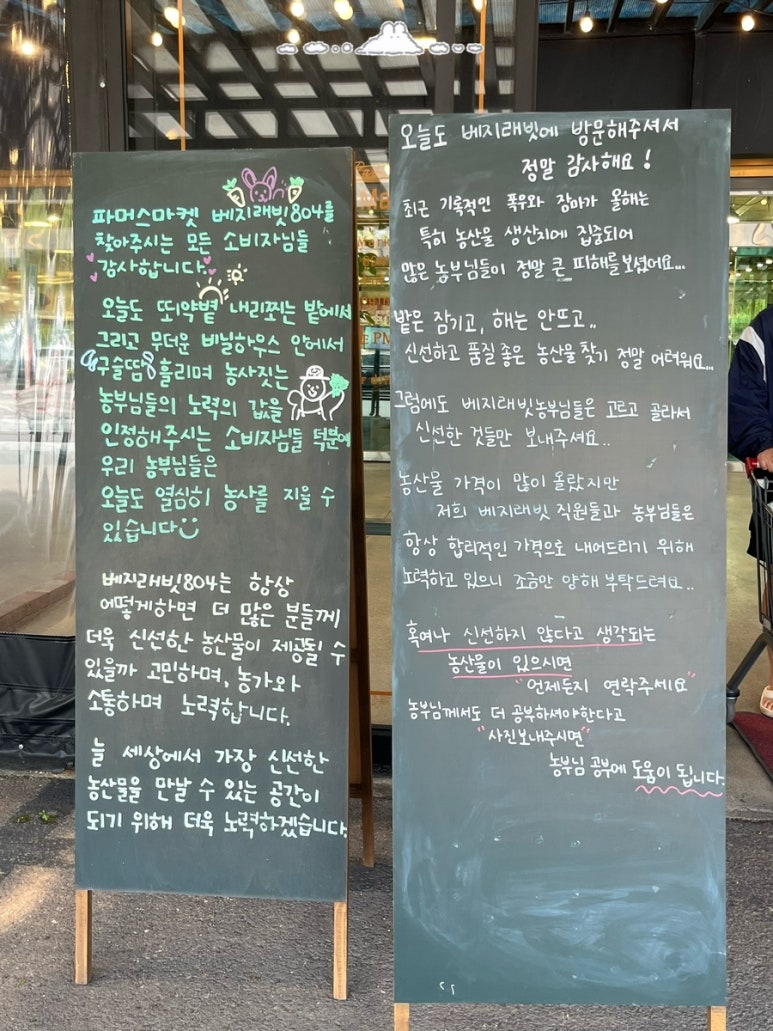 파머스마켓 베지래빗804를
찾아주시는 모든 소비자님들
감사합니다.
오늘도 뙤약볕 내리쬐는 밭에서
그리고 무더운 비닐하우스 안에서
구슬땀 흘리며 농사짓는
농부님들의 노력의 값을
인정해주시는 소비자님들 덕분에
우리 농부님들은
오늘도 열심히 농사를 지을 수
있습니다
베지래빗804는 항상
어떻게하면 더 많은 분들께
더욱 신선한 농산물이 제공될 수
있을까 고민하며, 농가와
소통하며 노력합니다.
늘 세상에서 가장 신선한
농산물을 만날 수 있는 공간이
되기 위해 더욱 노력하겠습니다.
오늘도 베지래빗에 방문해주셔서
정말 감사해요!
최근 기록적인 폭우와 장마가 올해는
특히 농산물 생산지에 집중되어
많은 농부님들이 정말 큰 피해를 보셨어요...
밭은 잠기고, 해는 안뜨고..
신선하고 품질 좋은 농산물 찾기 정말 어려워요...
그럼에도 베지래빗농부님들은 고르고 골라서
신선한 것들만 보내주셔요..
농산물 가격이 많이 올랐지만
저희 베지래빗 직원들과 농부님들은
항상 합리적인 가격으로 내어드리기 위해
노력하고 있으니 조금만 양해 부탁드려요..
혹여나 신선하지 않다고 생각되는
농산물이 있으시면
"언제든지 연락주세요"
농부님께서도 더 공부하셔야한다고
"사진보내주시면"
농부님 공부에 도움이 됩니다.